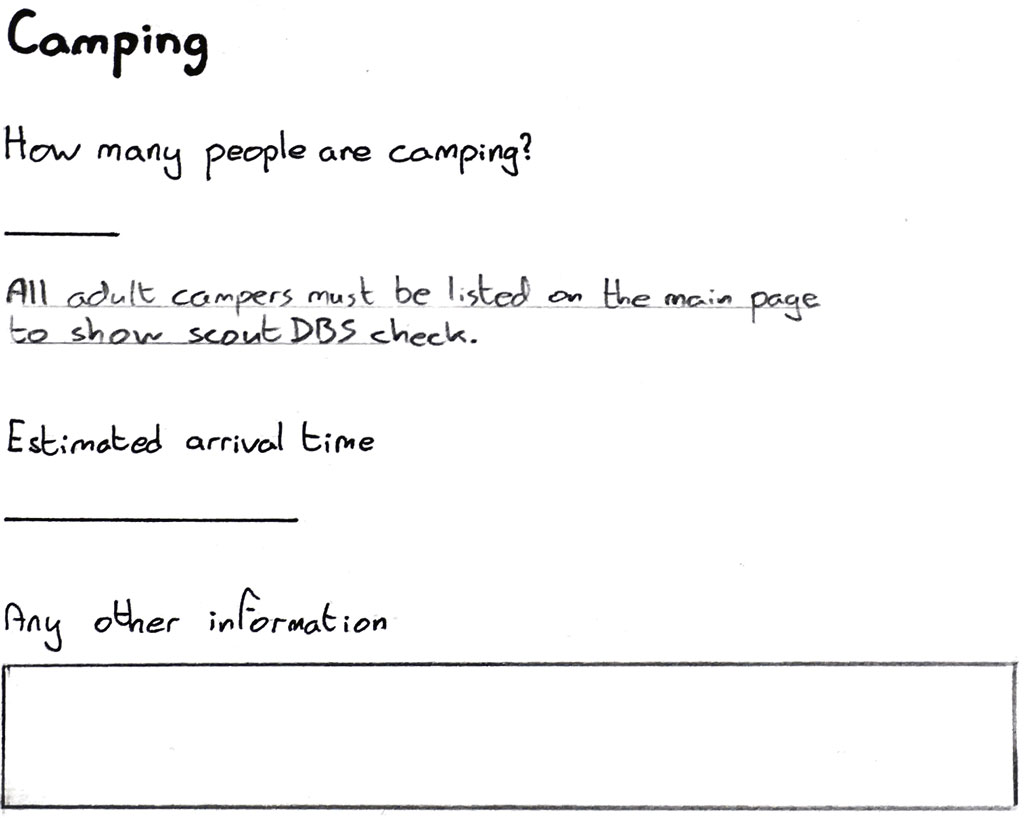 Camping
How many people are camping?
All adult campers must be listed on the main page
to show scout DBS check.
Estimated arrival time
Any other information